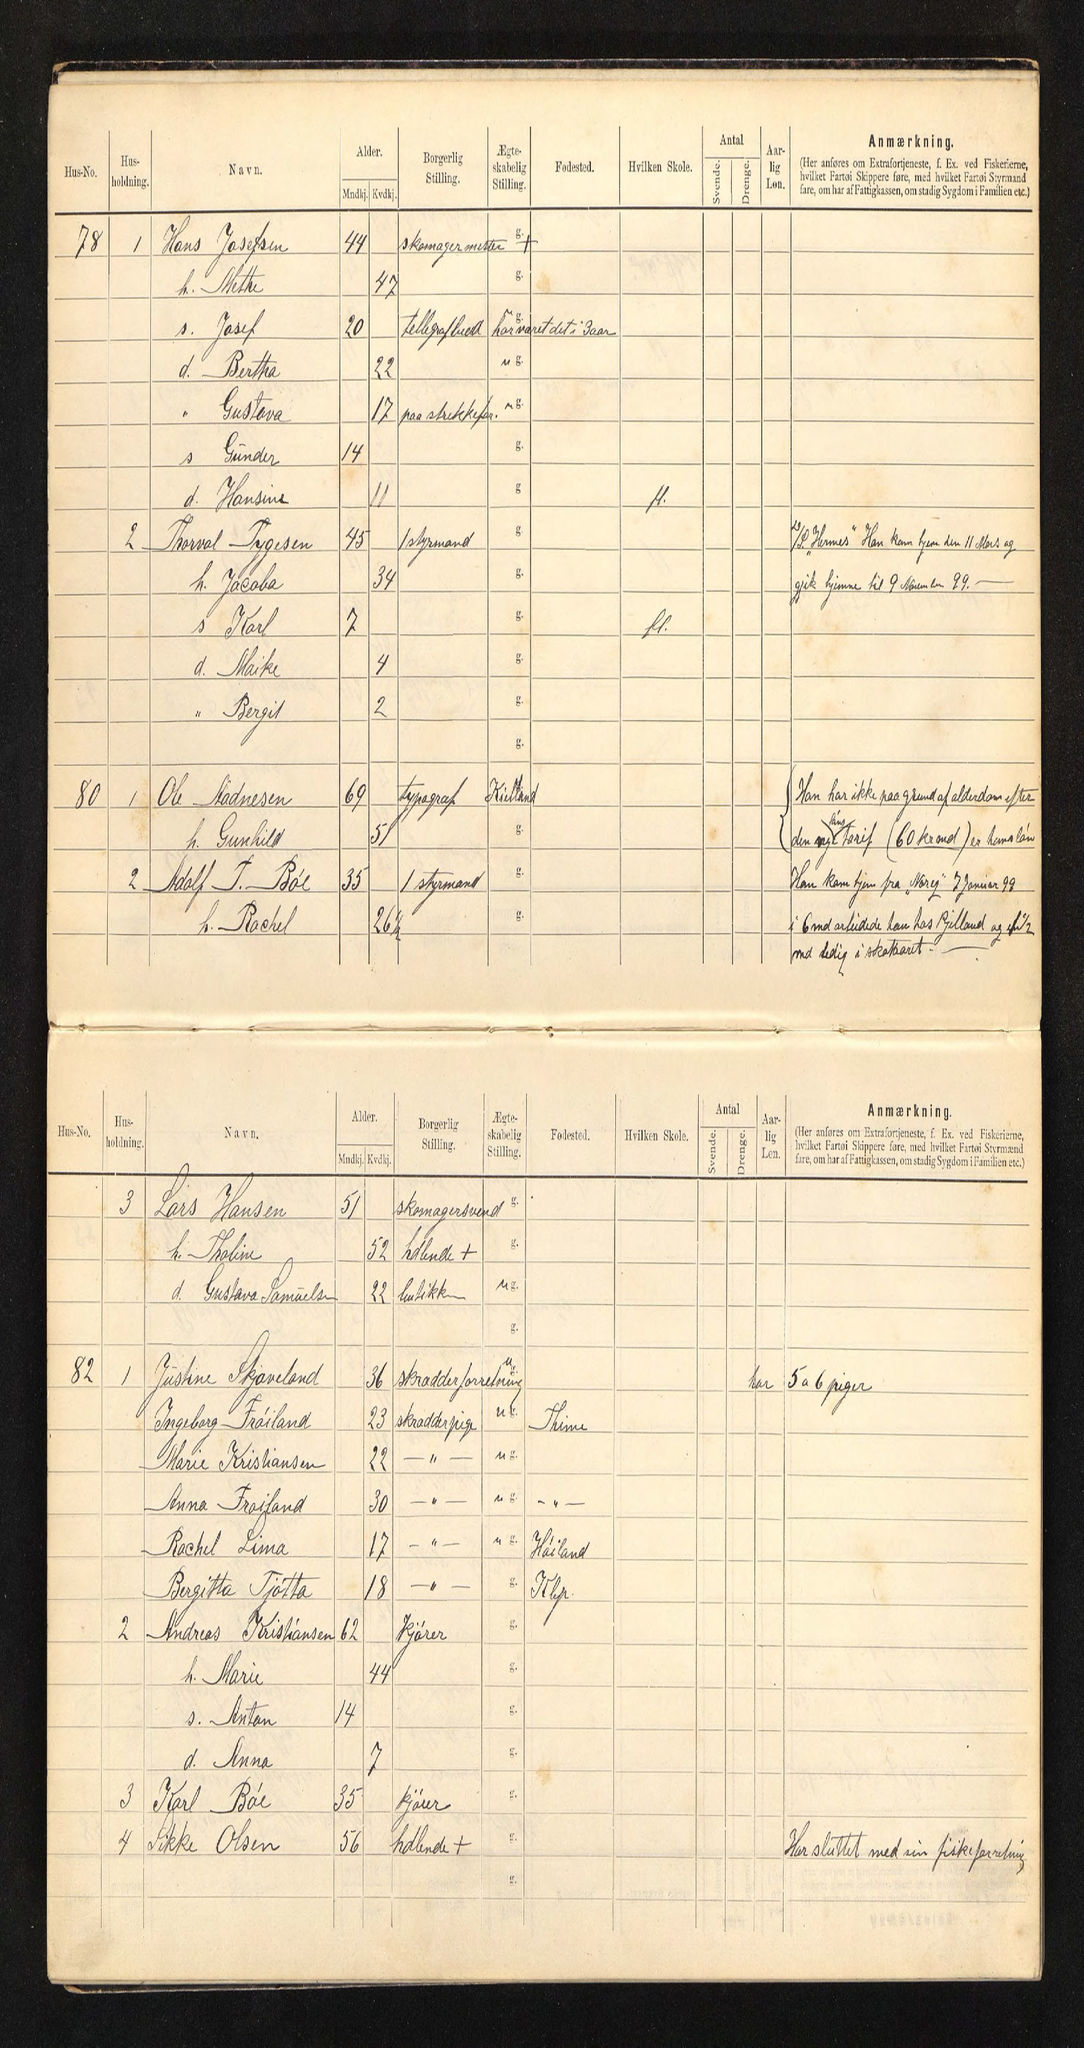 Hus-No. Hus-holdning. Navn. Alder. Mndkj. Kvdkj. Borgerlig Stilling. Ægte-skabelig Stilling. Fødested. Hvilken Skole. Antal Svende. Drenge. Aar-lig Løn. Anmærkning.
(Her anføres om Extrafortjeneste, f. Ex. ved Fiskerierne,
hvilket Fartøi Skippere føre, med hvilket Fartøi Styrmand
fare, om har af Fattigkassen, om stadig Sygdom i Familien etc.)
78 1 Hans Josefsen 44 skomagermester + g.
h. Methe 47 g.
s. Josef 20 tellegrafbud har varet det i 3 aar u g.
d. Bertha 22 u g.
" Gustava 17 paa strikkefor. u g.
s Gunder 14 g.
d. Hansine 11 g fl.
2 Thorval Tygesen 45 1 styrmand g D/S "Hermes" Han kom hjem den 11 Mars og
h. Jacoba 34 g. gik hjemme til 9 November 99. —
s Karl 7 g. fl.
d. Maike 4 g.
" Bergit 2 g.
g.
80 1 Ole Aadnesen 69 typograf Kielland Han har ikke paa grund af alderdom efter
h. Gunhild 51 g. den tarif (60 kr md) er hans løn
2 Adolf T. Bøe 35 1 styrmand g. Han kom hjem fra "Norej" 7 Januar 99
h. Rachel 26 1/2 g. i 6 md arbeidede han hos Kjelland og
md ledig i skataaret. —
Hus-No. Hus-holdning. Navn. Alder. Mndkj. Kvdkj. Borgerlig Stilling. Ægte-skabelig Stilling. Fødested. Hvilken Skole. Antal Svende. Drenge. Aar-lig Løn. Anmærkning.
(Her anføres om Extrafortjeneste, f. Ex. ved Fiskerierne,
hvilket Fartøi Skippere føre, med hvilket Fartøi Styrmænd
fare, om har af Fattigkassen, om stadig Sygdom i Familien etc.)
3 Lars Hansen 51 skomagersvend g.
h. Tholine 52 hdlende + g.
d. Gustava Samuelsen 22 butikk u g.
g.
82 1 Justine Skjaveland 36 skradderforretning u g. har 5 a 6 piger
Ingeborg Frøiland 23 skradderpige u g. Thime
Marie Kristiansen 22 — " — u g.
Anna Frøiland 30 — " — u g. — " —
Rachel Lima 17 — " — u g. Høiland
Bergitta Tjøtta 18 — " — g. Klep.
2 Andreas Kristiansen 62 kjører g.
h. Marie 44 g.
s. Anton 14 g.
d. Anna 7 g.
3 Karl Bøe 35 kjører g.
4 Sikke Olsen 56 hdlende + g. Har sluttet med sin fiskeforretning
g.